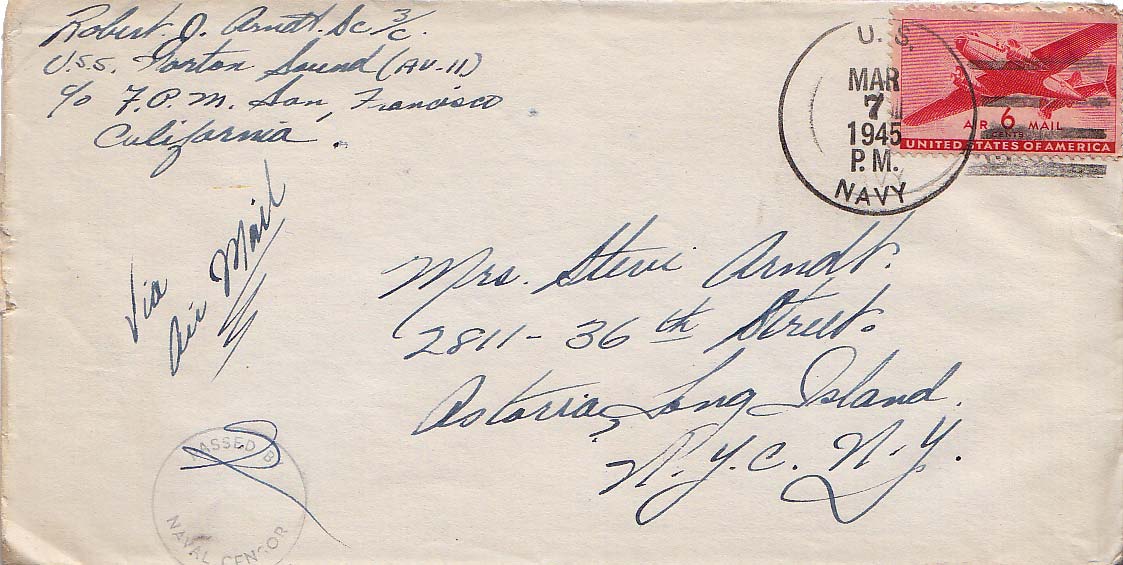 Robert J. Arndt. Sc 3/c.
U.S.S. Norton Sound (AV-11)
c/o F.P.M. San Francisco
California.
U. S.
MAR
7
1945
P.M.
NAVY
AIR 6 MAIL
CENTS
UNITED STATES OF AMERICA
Via
Air Mail
Mrs. Steve Arndt.
2811 - 36th Street.
Astoria, Long Island.
N.Y.C. N.Y.
PASSED BY
NAVAL CENSOR